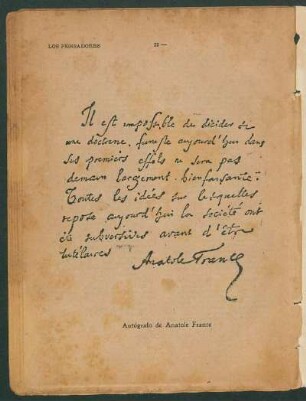 LOS PENSADORES
Il est impossible de décider si
une doctrine, funeste aujourd'hui dans
ses premiers effets ne sera pas
demain largement bienfaisante.
Toutes les idées sur lesquelles
repose aujourd'hui la société ont
été subversives avant d'être
tutélaires
Anatole France
Autógrafo de Anatole France